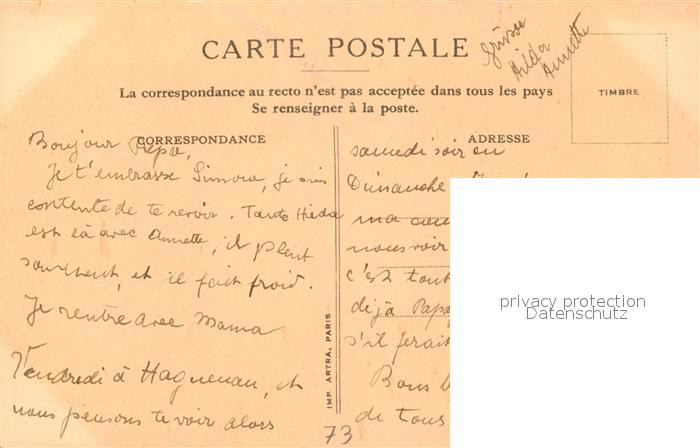 CARTE POSTALE
Grüsse
Hilda
Annette
La correspondance au recto n'est pas acceptée dans tous les pays
Se renseigner à la poste.
TIMBRE
CORRESPONDANCE
ADRESSE
Bonjour Pépé,
Je t'embrasse Simone, je suis
contente de te revoir. Tante Hilda
est là avec Annette, il pleut
souvent, et il fait froid.
Je rentre avec Mama
Vendredi à Haguenau, et
nous pensons te voir alors
samedi soir ou
Dimanche
ma
nous voir
c'est tout
déjà Papa
s'il ferait
Bons
de tous
IMP. ARTRA, PARIS
73
privacy protection
Datenschutz